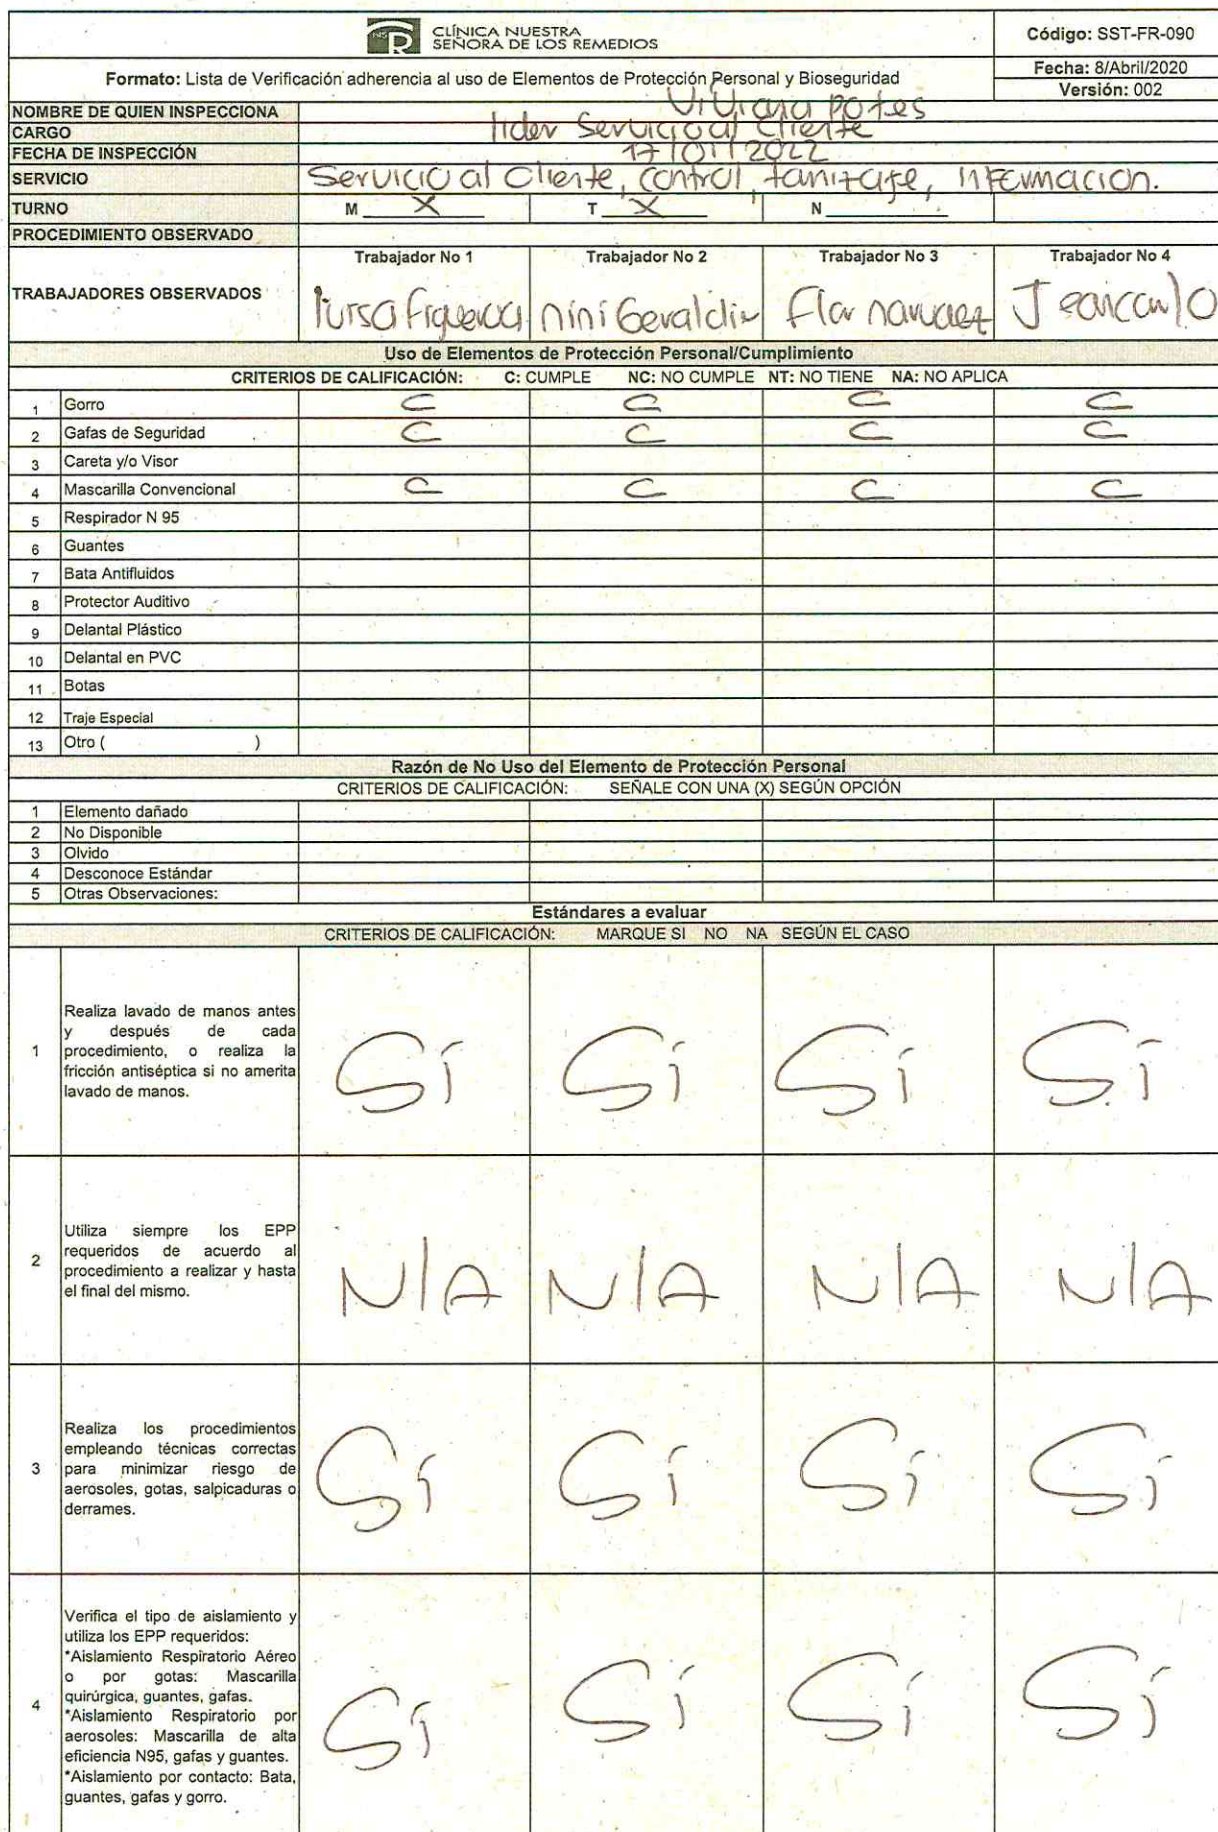 NSR CLÍNICA NUESTRA
SEÑORA DE LOS REMEDIOS
Código: SST-FR-090
Formato: Lista de Verificación adherencia al uso de Elementos de Protección Personal y Bioseguridad
Fecha: 8/Abril/2020
Versión: 002
NOMBRE DE QUIEN INSPECCIONA Viviana potes
CARGO lider Servicio al cliente
FECHA DE INSPECCIÓN 17/01/2022
SERVICIO Servicio al cliente, control, información.
TURNO M X T X N
PROCEDIMIENTO OBSERVADO
Trabajador No 1 Trabajador No 2 Trabajador No 3 Trabajador No 4
TRABAJADORES OBSERVADOS Figueroa nini Geraldin Flor narvaez Jeancarlo
Uso de Elementos de Protección Personal/Cumplimiento
CRITERIOS DE CALIFICACIÓN: C: CUMPLE NC: NO CUMPLE NT: NO TIENE NA: NO APLICA
1 Gorro C C C C
2 Gafas de Seguridad C C C C
3 Careta y/o Visor
4 Mascarilla Convencional C C C C
5 Respirador N 95
6 Guantes
7 Bata Antifluidos
8 Protector Auditivo
9 Delantal Plástico
10 Delantal en PVC
11 Botas
12 Traje Especial
13 Otro ( )
Razón de No Uso del Elemento de Protección Personal
CRITERIOS DE CALIFICACIÓN: SEÑALE CON UNA (X) SEGÚN OPCIÓN
1 Elemento dañado
2 No Disponible
3 Olvido
4 Desconoce Estándar
5 Otras Observaciones:
Estándares a evaluar
CRITERIOS DE CALIFICACIÓN: MARQUE SI NO NA SEGÚN EL CASO
Realiza lavado de manos antes
y después de cada
1 procedimiento, o realiza la
fricción antiséptica si no amerita
lavado de manos.
Sí Sí Sí Sí
Utiliza siempre los EPP
requeridos de acuerdo al
2 procedimiento a realizar y hasta
el final del mismo.
N/A N/A N/A N/A
Realiza los procedimientos
empleando técnicas correctas
3 para minimizar riesgo de
aerosoles, gotas, salpicaduras o
derrames.
Sí Sí Sí Sí
Verifica el tipo de aislamiento y
utiliza los EPP requeridos:
*Aislamiento Respiratorio Aéreo
o por gotas: Mascarilla
quirúrgica, guantes, gafas.
4 *Aislamiento Respiratorio por
aerosoles: Mascarilla de alta
eficiencia N95, gafas y guantes.
*Aislamiento por contacto: Bata,
guantes, gafas y gorro.
Sí Sí Sí Sí